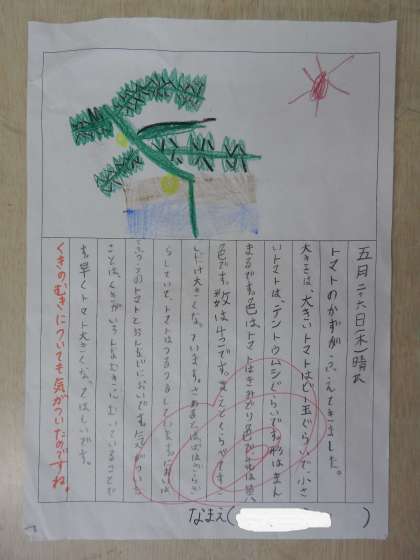 五月二十六日(木)晴れ
トマトのかずがふえてきました。
大きさは、大きいトマトはビー玉ぐらいで、小さ
いトマトは、テントウムシぐらいです。形はまん
まるです。色はトマトはきみどり色で花は黄
色です。数は4つです。まえとくらべてすこ
しだけ大きくなっています。さわるとはははざらざ
らしていて、トマトはつるつるしています。においは
ふつうのトマトとおんなじにおいです。気がついた
ことは、くきがいろんなむきにむいていることで
す。早くトマト大きくなってほしいです。
くきのむきについても気がついたのですね。
なまえ( )